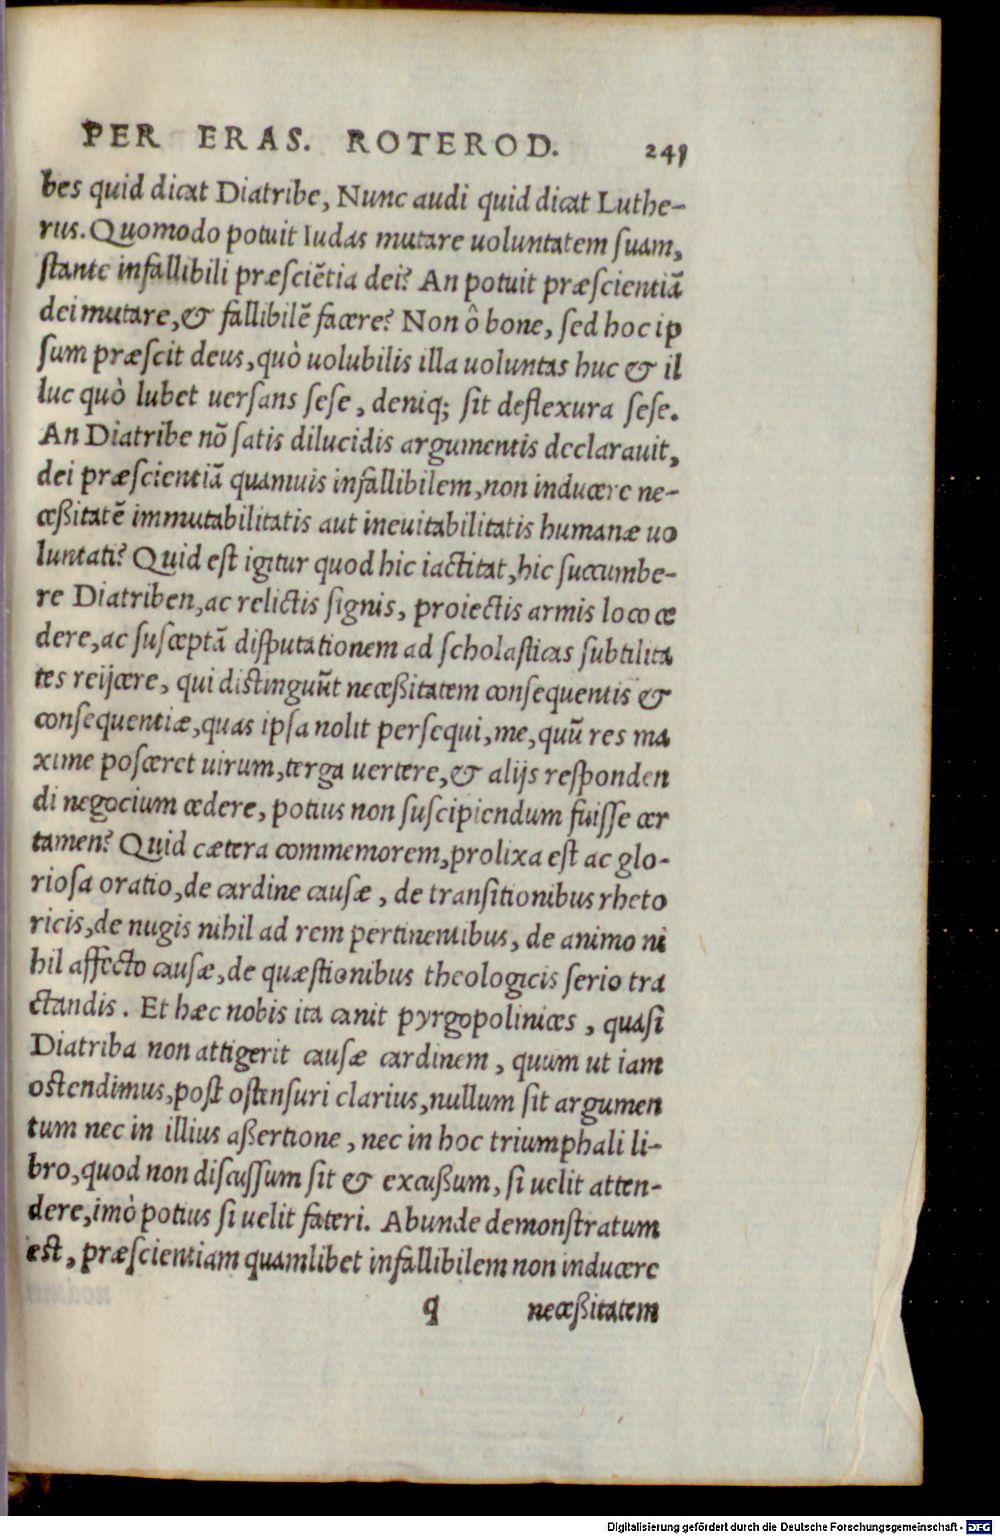 PER ERAS. ROTEROD. 241
bes quid dicat Diatribe, Nunc audi quid dicat Luthe-
rus. Quomodo potuit Iudas mutare uoluntatem ſuam,
ſtante infallibili præſciẽtia dei? An potuit præſcientiã
dei mutare, & fallibilẽ facere? Non ô bone, ſed hoc ip
ſum præſcit deus, quò uolubilis illa uoluntas huc & il
luc quò lubet uerſans ſeſe, deniq; ſit deflexura ſeſe.
An Diatribe nõ ſatis dilucidis argumentis declarauit,
dei præſcientiã quamuis infallibilem, non inducere ne-
ceßitatẽ immutabilitatis aut ineuitabilitatis humanæ uo
luntati? Quid eſt igitur quod hic iactitat, hic ſuccumbe-
re Diatriben, ac relictis ſignis, proiectis armis loco ce
dere, ac ſuſceptã diſputationem ad ſcholaſticas ſubtilita
tes reijcere, qui diſtinguũt neceßitatem conſequentis &
conſequentiæ, quas ipſa nolit perſequi, me, quũ res ma
xime poſceret uirum, terga uertere, & alijs reſponden
di negocium cedere, potius non ſuſcipiendum fuiſſe cer
tamen? Quid cætera commemorem, prolixa eſt ac glo-
rioſa oratio, de cardine cauſæ, de tranſitionibus rheto
ricis, de nugis nihil ad rem pertinentibus, de animo ni
hil affecto cauſæ, de quæſtionibus theologicis ſerio tra
ctandis. Et hæc nobis ita canit pyrgopolinices, quaſi
Diatriba non attigerit cauſæ cardinem, quum ut iam
oſtendimus, poſt oſtenſuri clarius, nullum ſit argumen
tum nec in illius aßertione, nec in hoc triumphali li-
bro, quod non diſcuſſum ſit & excußum, ſi uelit atten-
dere, imò potius ſi uelit fateri. Abunde demonſtratum
eſt, præſcientiam quamlibet infallibilem non inducere
q neceßitatem
Digitalisierung gefördert durch die Deutsche Forschungsgemeinschaft - DFG